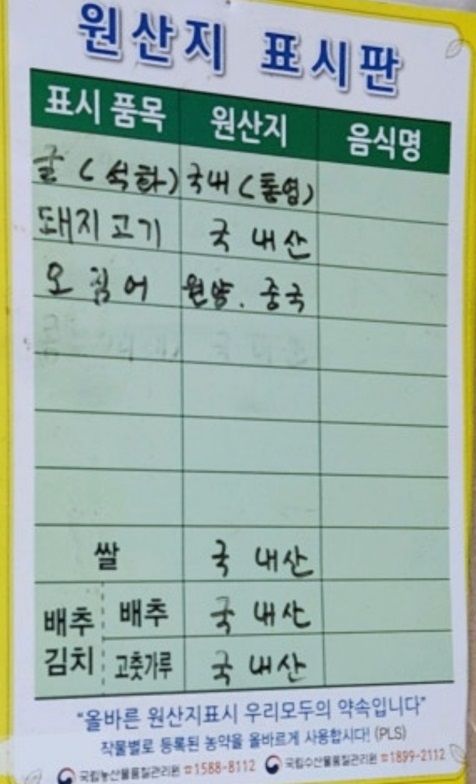 원산지 표시판
표시 품목 원산지 음식명
굴 (석화) 국내(통영)
돼지고기 국내산
오징어 원양. 중국
쌀 국내산
배추 국내산
배추
김치
고춧가루 국내산
“올바른 원산지표시 우리모두의 약속입니다”
작물별로 등록된 농약을 올바르게 사용합시다! (PLS)
국립농산물품질관리원 ☎1588-8112 국립수산물품질관리원 ☎1899-2112